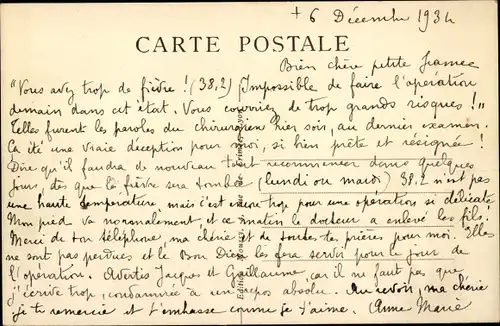 + 6 Décembre 1934
CARTE POSTALE
Bien chère petite
"Vous avez trop de fièvre ! (38,2) Impossible de faire l'opération
demain dans cet état. Vous courriez de trop grands risques !"
Telles furent les paroles du chirurgien hier soir, au dernier examen.
Ça été une vraie déception pour moi, si bien prête et résignée !
Dire qu'il faudra de nouveau tout recommencer dans quelques
jours, dès que la fièvre sera tombée (lundi ou mardi) 38,2 n'est pas
une haute température, mais c'est encore trop pour une opération si délicate
Mon pied va normalement, et ce matin le docteur a enlevé les fils.
Merci de ton téléphone, ma chérie et de toutes tes prières pour moi. Elles
ne sont pas perdues et le Bon Dieu les fera servir pour le jour de
l'opération. Avertis Jacques et Guillaume car il ne faut pas que
j'écrive trop, condamnée à un repos absolu. Au revoir, ma chérie
je te remercie et t'embrasse comme je t'aime. Anne Marie